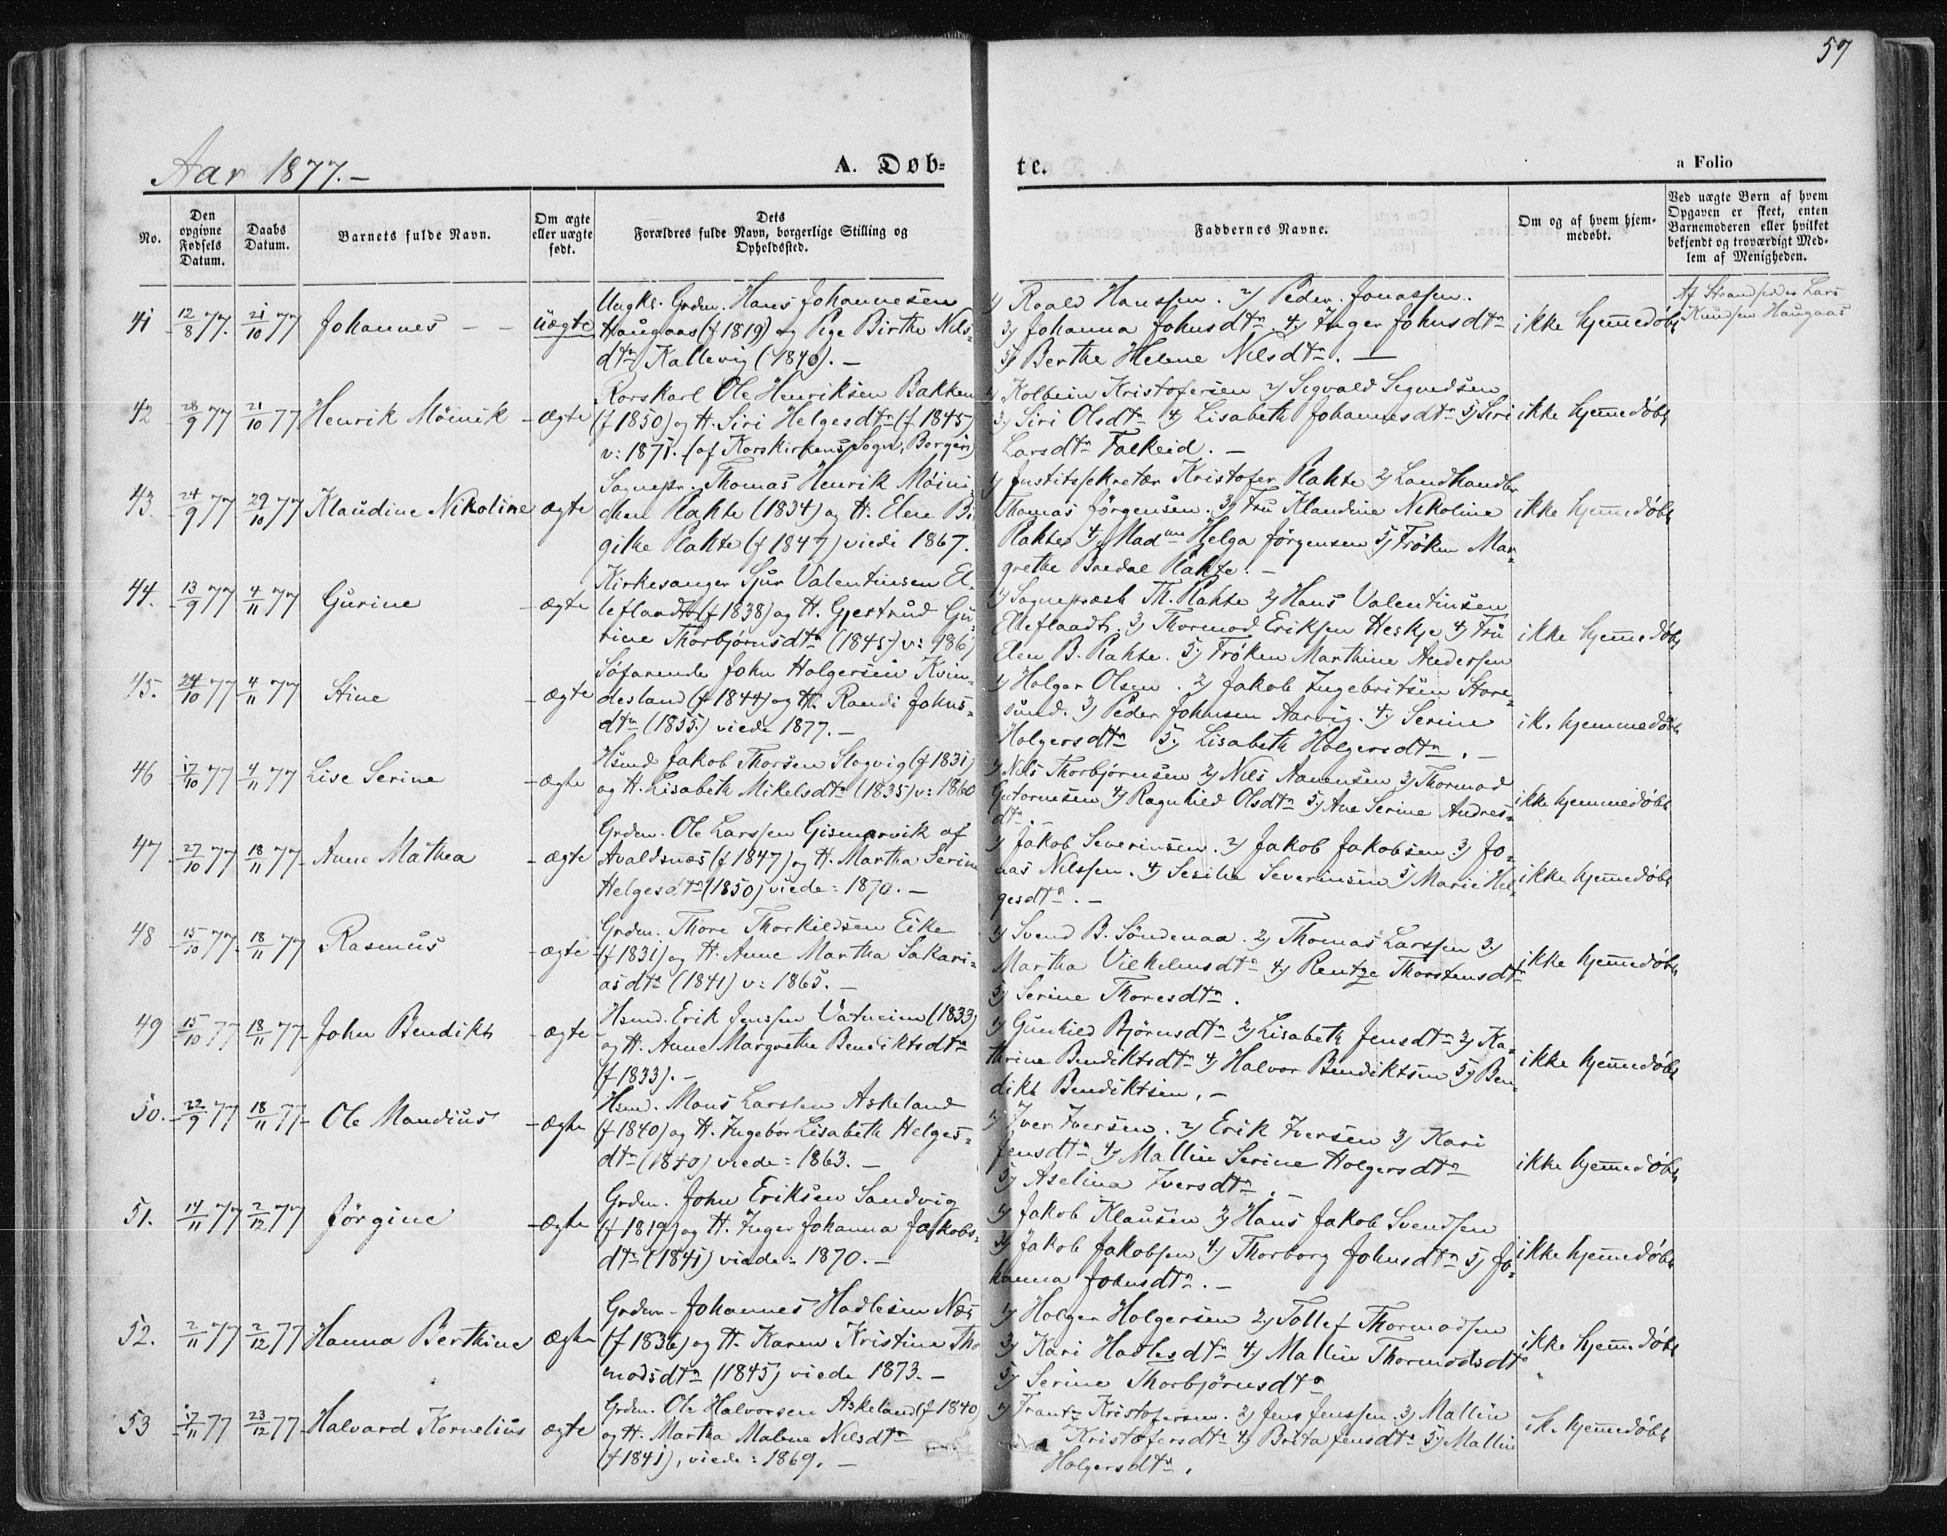 57
Aar 1877.-
A. Døb-
te.
a Folio
No.
Den opgivne Fødsels Datum.
Daabs Datum.
Barnets fulde Navn.
Om ægte eller uægte født.
Dets Forældres fulde Navn, borgerlige Stilling og Opholdssted.
Faddernes Navne.
Om og af hvem hjemmedøbt.
Ved uægte Børn af hvem Opgaven er skeet, enten Barnemoderen eller hvilket bekjendt og troværdigt Medlem af Menigheden.
41 12/8 77. 21/10 77 Johannes - - uægte
Ungkl. Grdm. Hans Johannesen
Haugaas (f 1819) og Pige Birthe Nils-
dtr Kallevig (1840). -
1) Roald Hanssen. 2) Peder Jonassen.
3) Johanna Johnsdtr. 4) Inger Johnsdtr
5) Berthe Helene Nilsdtr. -
ikke hjemmedøbt
Af Strandsidder Lars
Knudsen Haugaas
42 28/9 77 21/10 77 Henrik Möinik - ægte
Korskarl Ole Henriksen Bakken
(f 1850) og H. Siri Helgesdtr (f 1845)
v: 1871. (af Korskirkens Sogn, Bergen)
1) Kolbein Kristofersen 2) Sigvald Sigvedsen
3) Siri Olsdtr 4) Lisabeth Johannesdtr 5) Siri
Larsdtr Falkeid. -
ikke hjemmedøbt
43. 24/9 77 29/10 77 Klaudine Nikoline ægte
Sognepr. Thomas Henrik Möini-
chen Rahte (1834) og H. Elen Bi
gitte Rahte (f 1847) viede 1867.
1) Justitssekretær Kristofer Rahte 2) Landhandler
Thomas Jörgensen. 3) Fru Klaudine Nikoline
Rahte 4) Madam Helga Jörgensen 5) Fröken Mar-
grethe Bredal Rahte. -
ikke hjemmedøbt
44. 13/9 77 4/11 77 Gurine - ægte
Kirkesanger Sjur Valentinsen El-
leflaadt (f 1838) og H. Gjertrud Gu-
rine Thorbjörnsdtr (1845) v:
1) Sognepræst Th. Rahte 2) Hans Valentinsen
Elleflaadt. 3) Thormod Eriksen Heskje 4) Fru
Elen B. Rahte. 5) Fröken Marthine Andersen
ikke hjemmedøbt
45. 24/10 77 4/11 77 Stine - ægte
Söfarende John Holgersen Kvin-
desland (f 1844) og H. Randi Johns-
dtr (1855) viede 1877. -
1) Holger Olsen. 2) Jakob Ingebritsen Store-
sund. 3) Peder Johnsen Aarvig. 4) Serine
Holgersdtr 5) Lisabeth Holgersdtr. -
ik. hjemmedøbt
46 17/10 77 4/11 77 Lise Serine - ægte
Hsmd Jakob Thorsen Slogvig (f 1831)
og H. Lisabeth Mikelsdtr (1835) v: 1860
1) Nils Thorbjörnsen 2) Nils Aanensen 3) Thormod
Gutormsen 4) Ragnhild Olsdtr 5) Ane Serine Andres-
dtr.
ikke hjemmedøbt
47 27/10 77 18/11 77 - Anne Mathea - ægte
Grdm. Ole Larssen Gismarvik af
Avaldsnæs (f 1847) og H. Martha Serine
Helgesdtr (1850) viede: 1870. -
1) Jakob Severinsen. 2) Jakob Jakobsen 3) Jo-
nas Nilssen. 4) Sesilie Severinsen 5) Marie Hel-
gesdtr. -
ikke hjemmedøbt
48 15/10 77. 18/11 77 Rasmus - ægte
Grdm. Thore Thorkildsen Eike
(f 1831) og H. Anne Martha Sakari-
asdtr (1841) v: 1865. -
1) Svend B. Söndenaa. 2) Thomas Larssen 3)
Martha Vilhelmsdtr 4) Rentze Thorstensdtr
5) Serine Thoresdtr.
ikke hjemmedøbt
49 15/10 77 18/11 77 - John Bendikt - ægte
Hsmd. Erik Jenssen Vatneim (1833)
og H. Anne Margrethe Bendiktsdtr
(f 1833). -
1) Gunhild Björnsdtr 2) Lisabeth Jensdtr 3) Ka-
thrine Bendiktsdtr 4) Halvor Bendiktsen 5) Ben-
dikt Bendiktsen. -
ikke hjemmedøbt
50. 22/9 77 18/11 77 - Ole Mandius - ægte
Hsmd. Mons Larssen Askeland
(f 1840) og H. Ingebor Lisabeth Helges-
dtr (1840) viede: 1863. -
1) Iver Iversen. 2) Erik Iversen 3) Kari
Jensdtr 4) Mallin Serine Holgersdtr
5) Aselina Iversdtr. -
ikke hjemmedøbt
51. 14/11 77 2/12 77 Jörgine - ægte
Grdm. John Eriksen Sandvig
(f 1819) og H. Inger Johanna Jakobs-
dtr (1841) viede: 1870. -
1) Jakob Klausen 2) Hans Jakob Svendsen
3) Jakob Jakobsen 4) Thorborg Johnsdtr 5) Jo-
hanna Johnsdtr. -
ikke hjemmedøbt
52. 2/11 77 2/12 77 Hanna Berthine ægte
Grdm. Johannes Hadlesen Næs
(f 1836) og H. Karen Kristine Tho
modsdtr (1845) viede 1873. -
1) Holger Holgersen 2) Tollef Thormodsen
3) Kari Hadlesdtr 4) Mallin Thormodsdtr
5) Serine Thorbjörnsdtr
ikke hjemmedøbt
53 17/11 77 23/12 77 - Halvard Kornelius ægte
Grdm. Ole Halvorsen Askeland (f 1840)
og H. Martha Malene Nilsdtr
(f 1841), viede: 1869. -
1) Frantz Kristofersen. 2) Jens Jenssen. 3) Mallin
Kristofersdtr 4) Brita Jensdtr 5) Mallin
Holgersdtr.
ik. hjemmedøbt